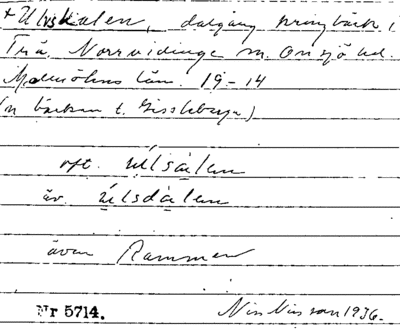 + Ulvsdalen, dalgång kring bäck i
Trä, Norrvidinge sn. Onsjö hd.
Malmöhus län. 19-14
(n bäcken t. Gissleberga)
oft. úlsálen
äv. úlsdálen
även Rammen
Nr 5714.
Nils Nilsson 1936.